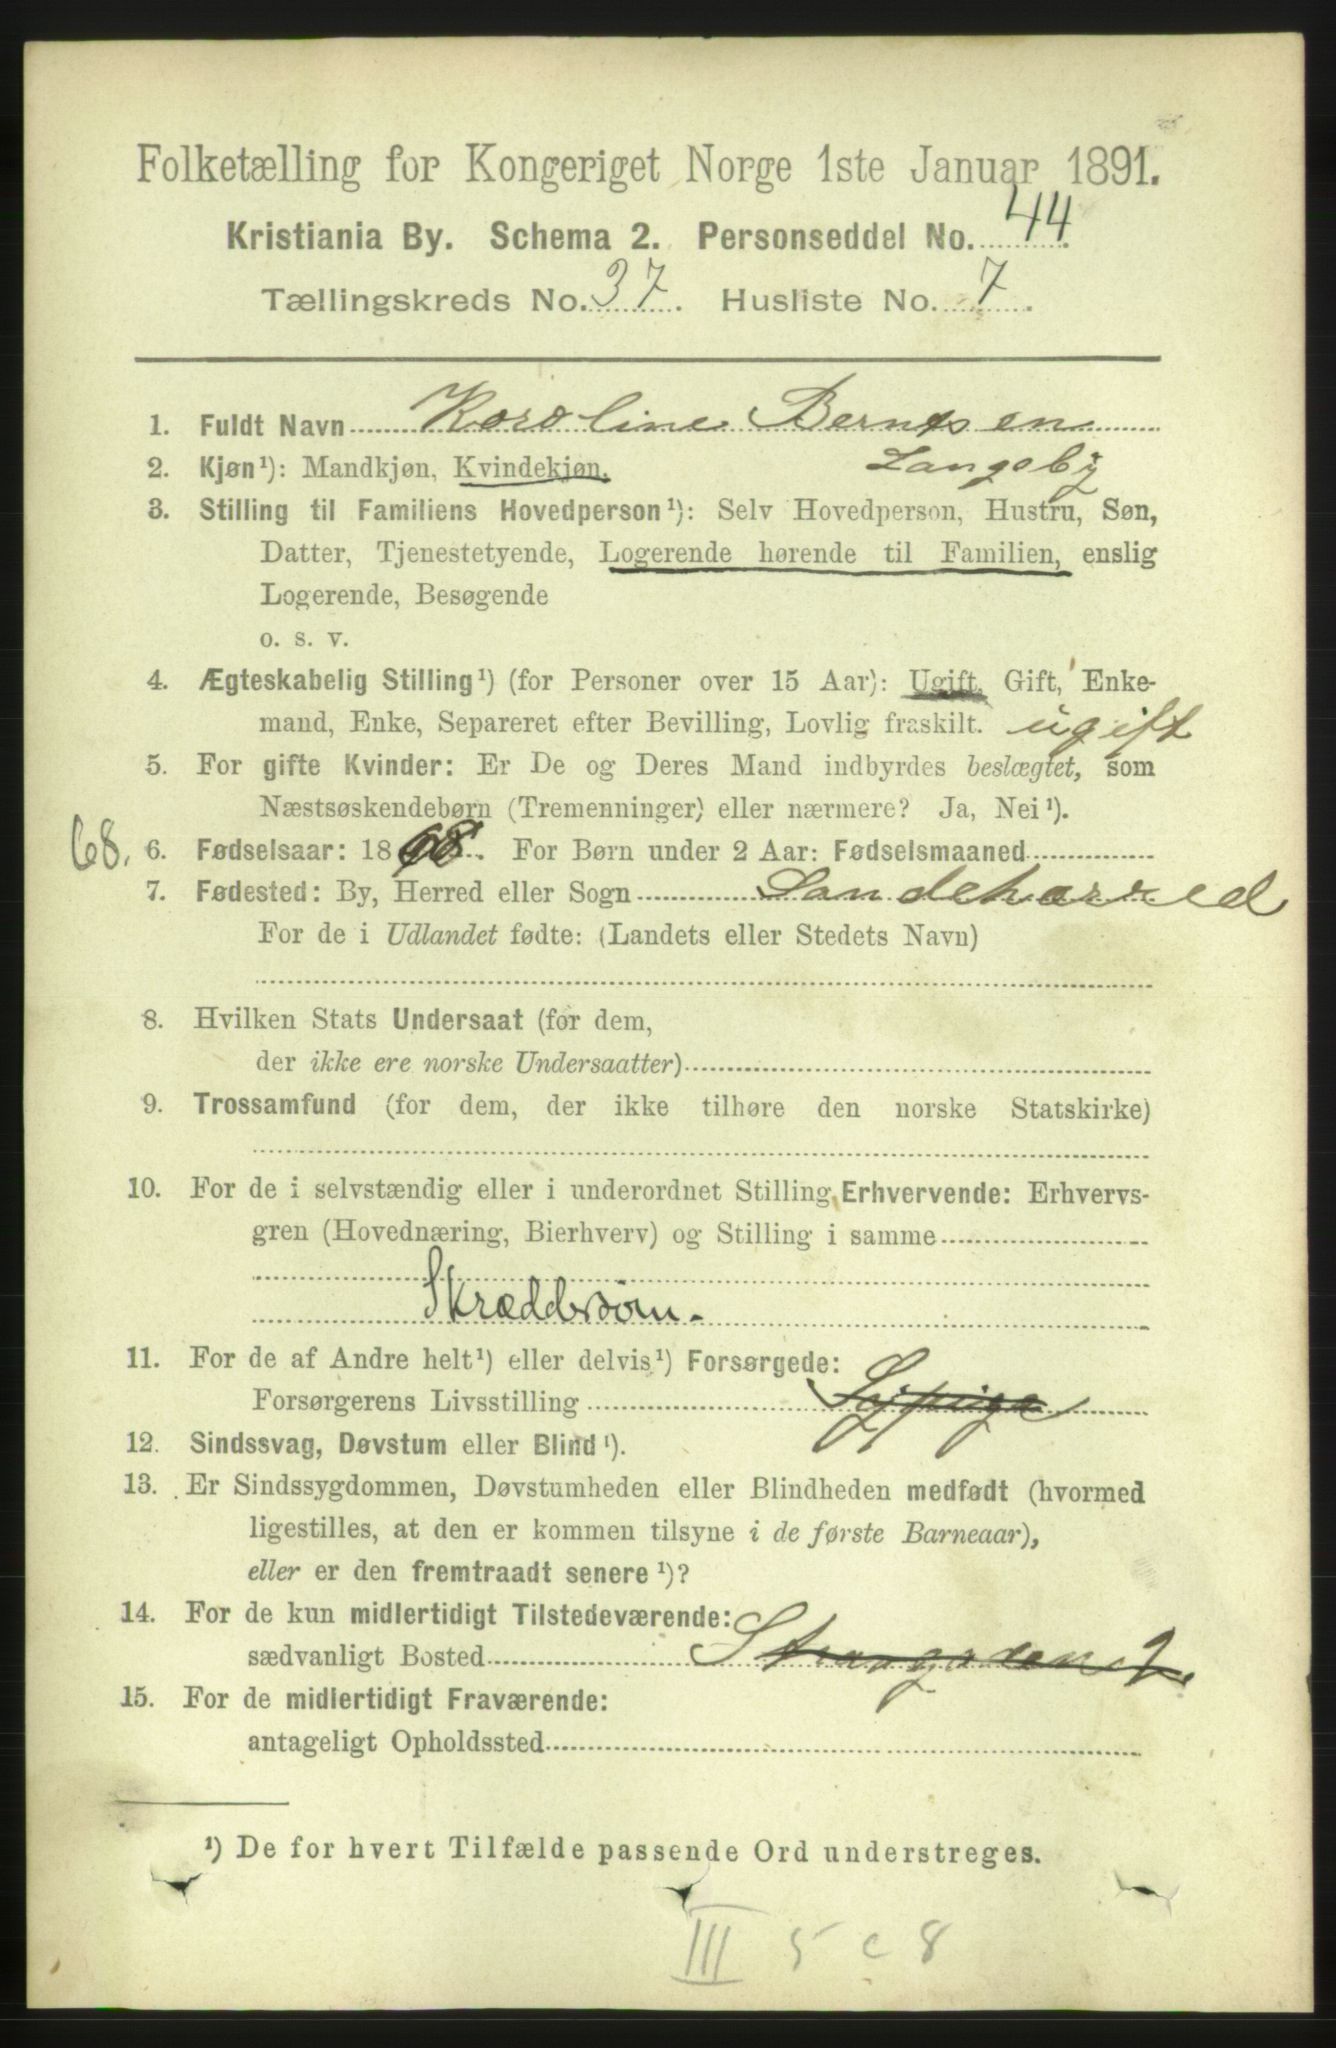 Folketælling for Kongeriget Norge 1ste Januar 1891.
Kristiania By. Schema 2. Personseddel No. 44.
Tællingskreds No. 37. Husliste No. 7.
1. Fuldt Navn Karoline Berntsen
2. Kjøn¹): Mandkjøn, Kvindekjøn. Langeby
3. Stilling til Familiens Hovedperson¹): Selv Hovedperson, Hustru, Søn,
Datter, Tjenestetyende, Logerende hørende til Familien, enslig
Logerende, Besøgende
o. s. v.
4. Ægteskabelig Stilling¹) (for Personer over 15 Aar): Ugift, Gift, Enke-
mand, Enke, Separeret efter Bevilling, Lovlig fraskilt. ugift
5. For gifte Kvinder: Er De og Deres Mand indbyrdes beslægtet, som
Næstsøskendebørn (Tremenninger) eller nærmere? Ja, Nei¹).
68. 6. Fødselsaar: 1868. For Børn under 2 Aar: Fødselsmaaned
7. Fødested: By, Herred eller Sogn Sandeharred
For de i Udlandet fødte: (Landets eller Stedets Navn)
8. Hvilken Stats Undersaat (for dem,
der ikke ere norske Undersaatter)
9. Trossamfund (for dem, der ikke tilhøre den norske Statskirke)
10. For de i selvstændig eller i underordnet Stilling Erhvervende: Erhvervs-
gren (Hovednæring, Bierhverv) og Stilling i samme
Skræddersøm.
11. For de af Andre helt¹) eller delvis¹) Forsørgede:
Forsørgerens Livsstilling Sypige
12. Sindssvag, Døvstum eller Blind¹).
13. Er Sindssygdommen, Døvstumheden eller Blindheden medfødt (hvormed
ligestilles, at den er kommen tilsyne i de første Barneaar),
eller er den fremtraadt senere¹)?
14. For de kun midlertidigt Tilstedeværende:
sædvanligt Bosted
15. For de midlertidigt Fraværende:
antageligt Opholdssted
¹) De for hvert Tilfælde passende Ord understreges.
III 5 c 8